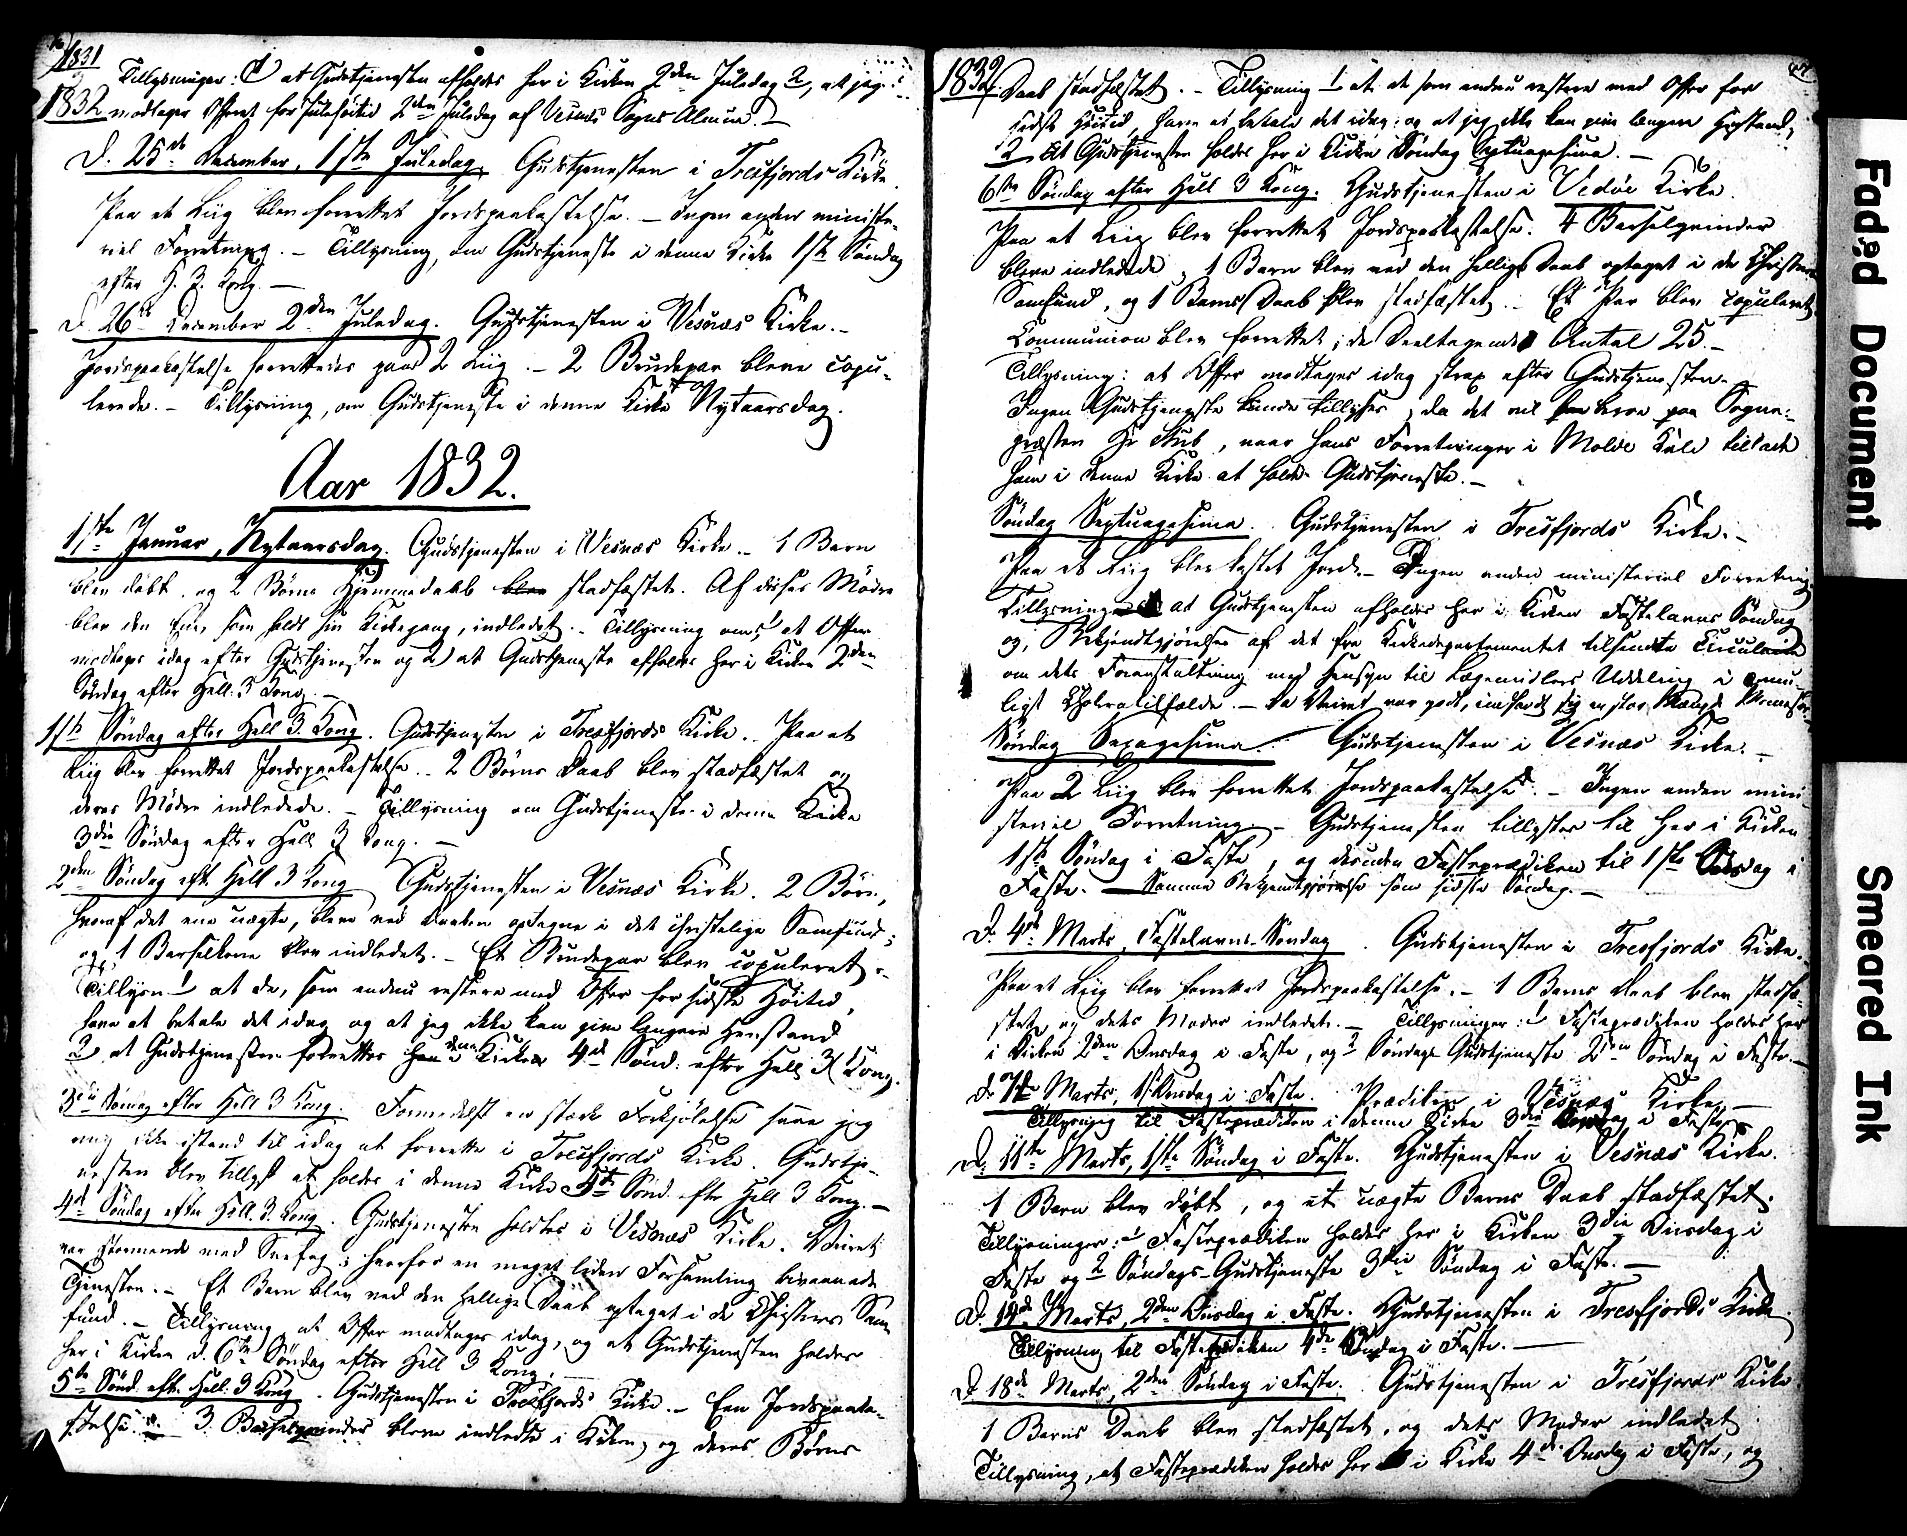 1831
Tillysninger: 1) at Gudstjenesten afholdes her i Kirken 2den Juledag 2, at jeg
1832 modtager Offret for Julehøitid 2den Juledag af Vesnæs Sogns Almue. -
D. 25de December, 1ste Juledag. Gudstjenesten i Tresfjords Kirke.
Paa et Liig blev forrettet Jordspaakastelse. - Ingen anden ministe-
riel Forretning. - Tillysning, om Gudstjeneste i denne Kirke 1ste Søndag
efter H. 3. Kong. -
D. 26de December 2den Juledag. Gudstjenesten i Vesnæs Kirke. -
Jordspaakastelse forrettedes paa 2 Liig. - 2 Brudepar bleve copu-
lerede. - Tillysning, om Gudstjeneste i denne Kirke Nytaarsdag.
Aar 1832.
1ste Januar, Nytaarsdag. Gudstjenesten i Vesnæs Kirke. - 1 Barn
blev døbt, og 2 Børns Hjemmedaab blev stadfæstet. Af disses Mødre
blev den Ene, som holdt sin Kirkegang, indledet. - Tillysning om, 1 at Offer
modtages idag efter Gudstjenesten og 2) at Gudstjeneste afholdes her i Kirken 2den
Søndag efter Hell. 3 Kong. -
1ste Søndag efter Hell 3. Kong. Gudstjenesten i Tresfjords Kirke. - Paa et
Liig blev forrettet Jordspaakastelse. - 2 Børns Daab blev stadfæstet og
deres Mødre indledede. - Tillysning om Gudstjeneste i denne Kirke
3die Søndag efter Hell 3 Kong. -
2den Søndag eft. Hell 3 Kong Gudstjenesten i Vesnæs Kirke. 2 Børn,
hvoraf det ene uægte, bleve ved Daaben optagne i det christelige Samfund;
og 1 Barselkone blev indledet. - Et Brudepar blev copuleret -
Tillysn 1 at de, som endnu restere med Offer for sidste Høitid,
have at betale det idag og at jeg ikke kan give længere Henstand
2 at Gudstjenesten forrettes her i denne Kirke 4de Sønd: efter Hell 3 Kong.
3die Søndag efter Hell 3 Kong. Formedelst en stærk Forkjølelse saae jeg
mig ikke istand til idag at forrette i Tresfjords Kirke. Gudstje-
nesten blev tillyst at holdes i denne Kirke 5te Sønd. efter Hell 3 Kong. -
4de Søndag efter Hell. 3. Kong. Gudstjenesten holdtes i Vesnæs Kirke. Veiret
var stormende med Snefog; hvorfor en meget liden Forsamling bivaanede
Tjenesten. - Et Barn blev ved den hellige Daab optaget i de Christnes Sam-
fund. - Tillysning at Offer modtages idag, og at Gudstjenesten holdes
her i Kirken d. 6te Søndag efter Hell 3 Kong. -
5te Sønd. eft. Hell. 3 Kong. Gudstjenesten i Tresfjords Kirke. - Een Jordspaaka-
stelse. 3. Barselqvinder bleve indledte i Kirken, og deres Børns
1832 Daab stadfæstet. - Tillysning 1 at de som endnu restere med Offer for
sidste Høitid, have at betale det idag: og at jeg ikke kan give længere Henstand,
2 At Gudstjenesten holdes her i Kirken Søndag Septuagesima. -
6te Søndag efter Hell 3 Kong. Gudstjenesten i Vedøe Kirke.
Paa et Liig blev forrettet Jordspaakastelse. 4 Barselqvinder
bleve indledede, 1 Barn blev ved den hellige Daab optaget i de Christnes
Samfund, og 1 Barns Daab blev stadfæstet. - Et Par blev copuleret
Communion blev forrettet; de Deeltagendes Antal 25. -
Tillysning: at Offer modtages idag strax efter Gudstjenesten. -
Ingen Gudstjeneste kunde tillyses, da det vil beroe paa Sogne-
præsten Hr Stub, naar hans Forretninger i Molde Kald tillade
ham i denne Kirke at holde Gudstjeneste. -
Søndag Septuagesima. Gudstjenesten i Tresfjords Kirke. -
Paa et Liig blev kastet Jord. - Ingen anden ministeriel Forretning
Tillysning at Gudstjenesten afholdes her i Kirken Fastelavns Søndag
og, Bekjendtgjørelsen af det fra Kirkedepartementet tilsendte Circulaire
om dets Foranstaltning med Hensyn til Lægemidlers Uddeling i muu-
ligt Choleratilfælde. - Da Veiret var godt, indfandt sig en stor Mængde Mennesker
Søndag Sexagesima. Gudstjenesten i Vesnæs Kirke. -
Paa 2 Liig blev forrettet Jordspaakastelse. - Ingen anden mini-
steriel Forretning. - Gudstjenesten tillystes til her i Kirken
1ste Søndag i Faste, og desuden Fasteprædiken til 1ste Onsdag i
Faste. - Samme Bekjendtgjørelse som sidste Søndag. -
D. 4de Marts, Fastelavns-Søndag. Gudstjenesten i Tresfjords Kirke. -
Paa et Liig blev forrettet Jordspaakastelse. - 1 Barns Daab blev stadfæ-
stet og dets Moder indledet. - Tillysninger: 1 Fasteprædiken holdes her
i Kirken 2den Onsdag i Faste, og 2 Søndags Gudstjeneste 2den Søndag i Faste. -
D. 7de Marts, 1ste Onsdag i Faste. Prædiken i Vesnæs Kirke. -
Tillysning til Fasteprædiken i denne Kirke 3die Onsdag i Faste
D. 11te Marts, 1ste Søndag i Faste. Gudstjenesten i Vesnæs Kirke.
1 Barn blev døbt, og et uægte Barns Daab stadfæstet.
Tillysninger: 1 Fasteprædiken holdes her i Kirken 3die Onsdag i
Faste og 2 Søndags-Gudstjeneste 3die Søndag i Faste. -
D. 14de Marts, 2den Onsdag i Faste. Gudstjenesten i Tresfjords Kirke.
Tillysning til Fasteprædiken 4de Onsdag i Faste. -
D. 18de Marts, 2den Søndag i Faste. Gudstjenesten i Tresfjords Kirke
1 Barns Daab blev stadfæstet, og dets Moder indledet
Tillysning, at Fasteprædiken holdes her i Kirke 4de Onsdag i Faste, og
Faded Document
Smeared Ink